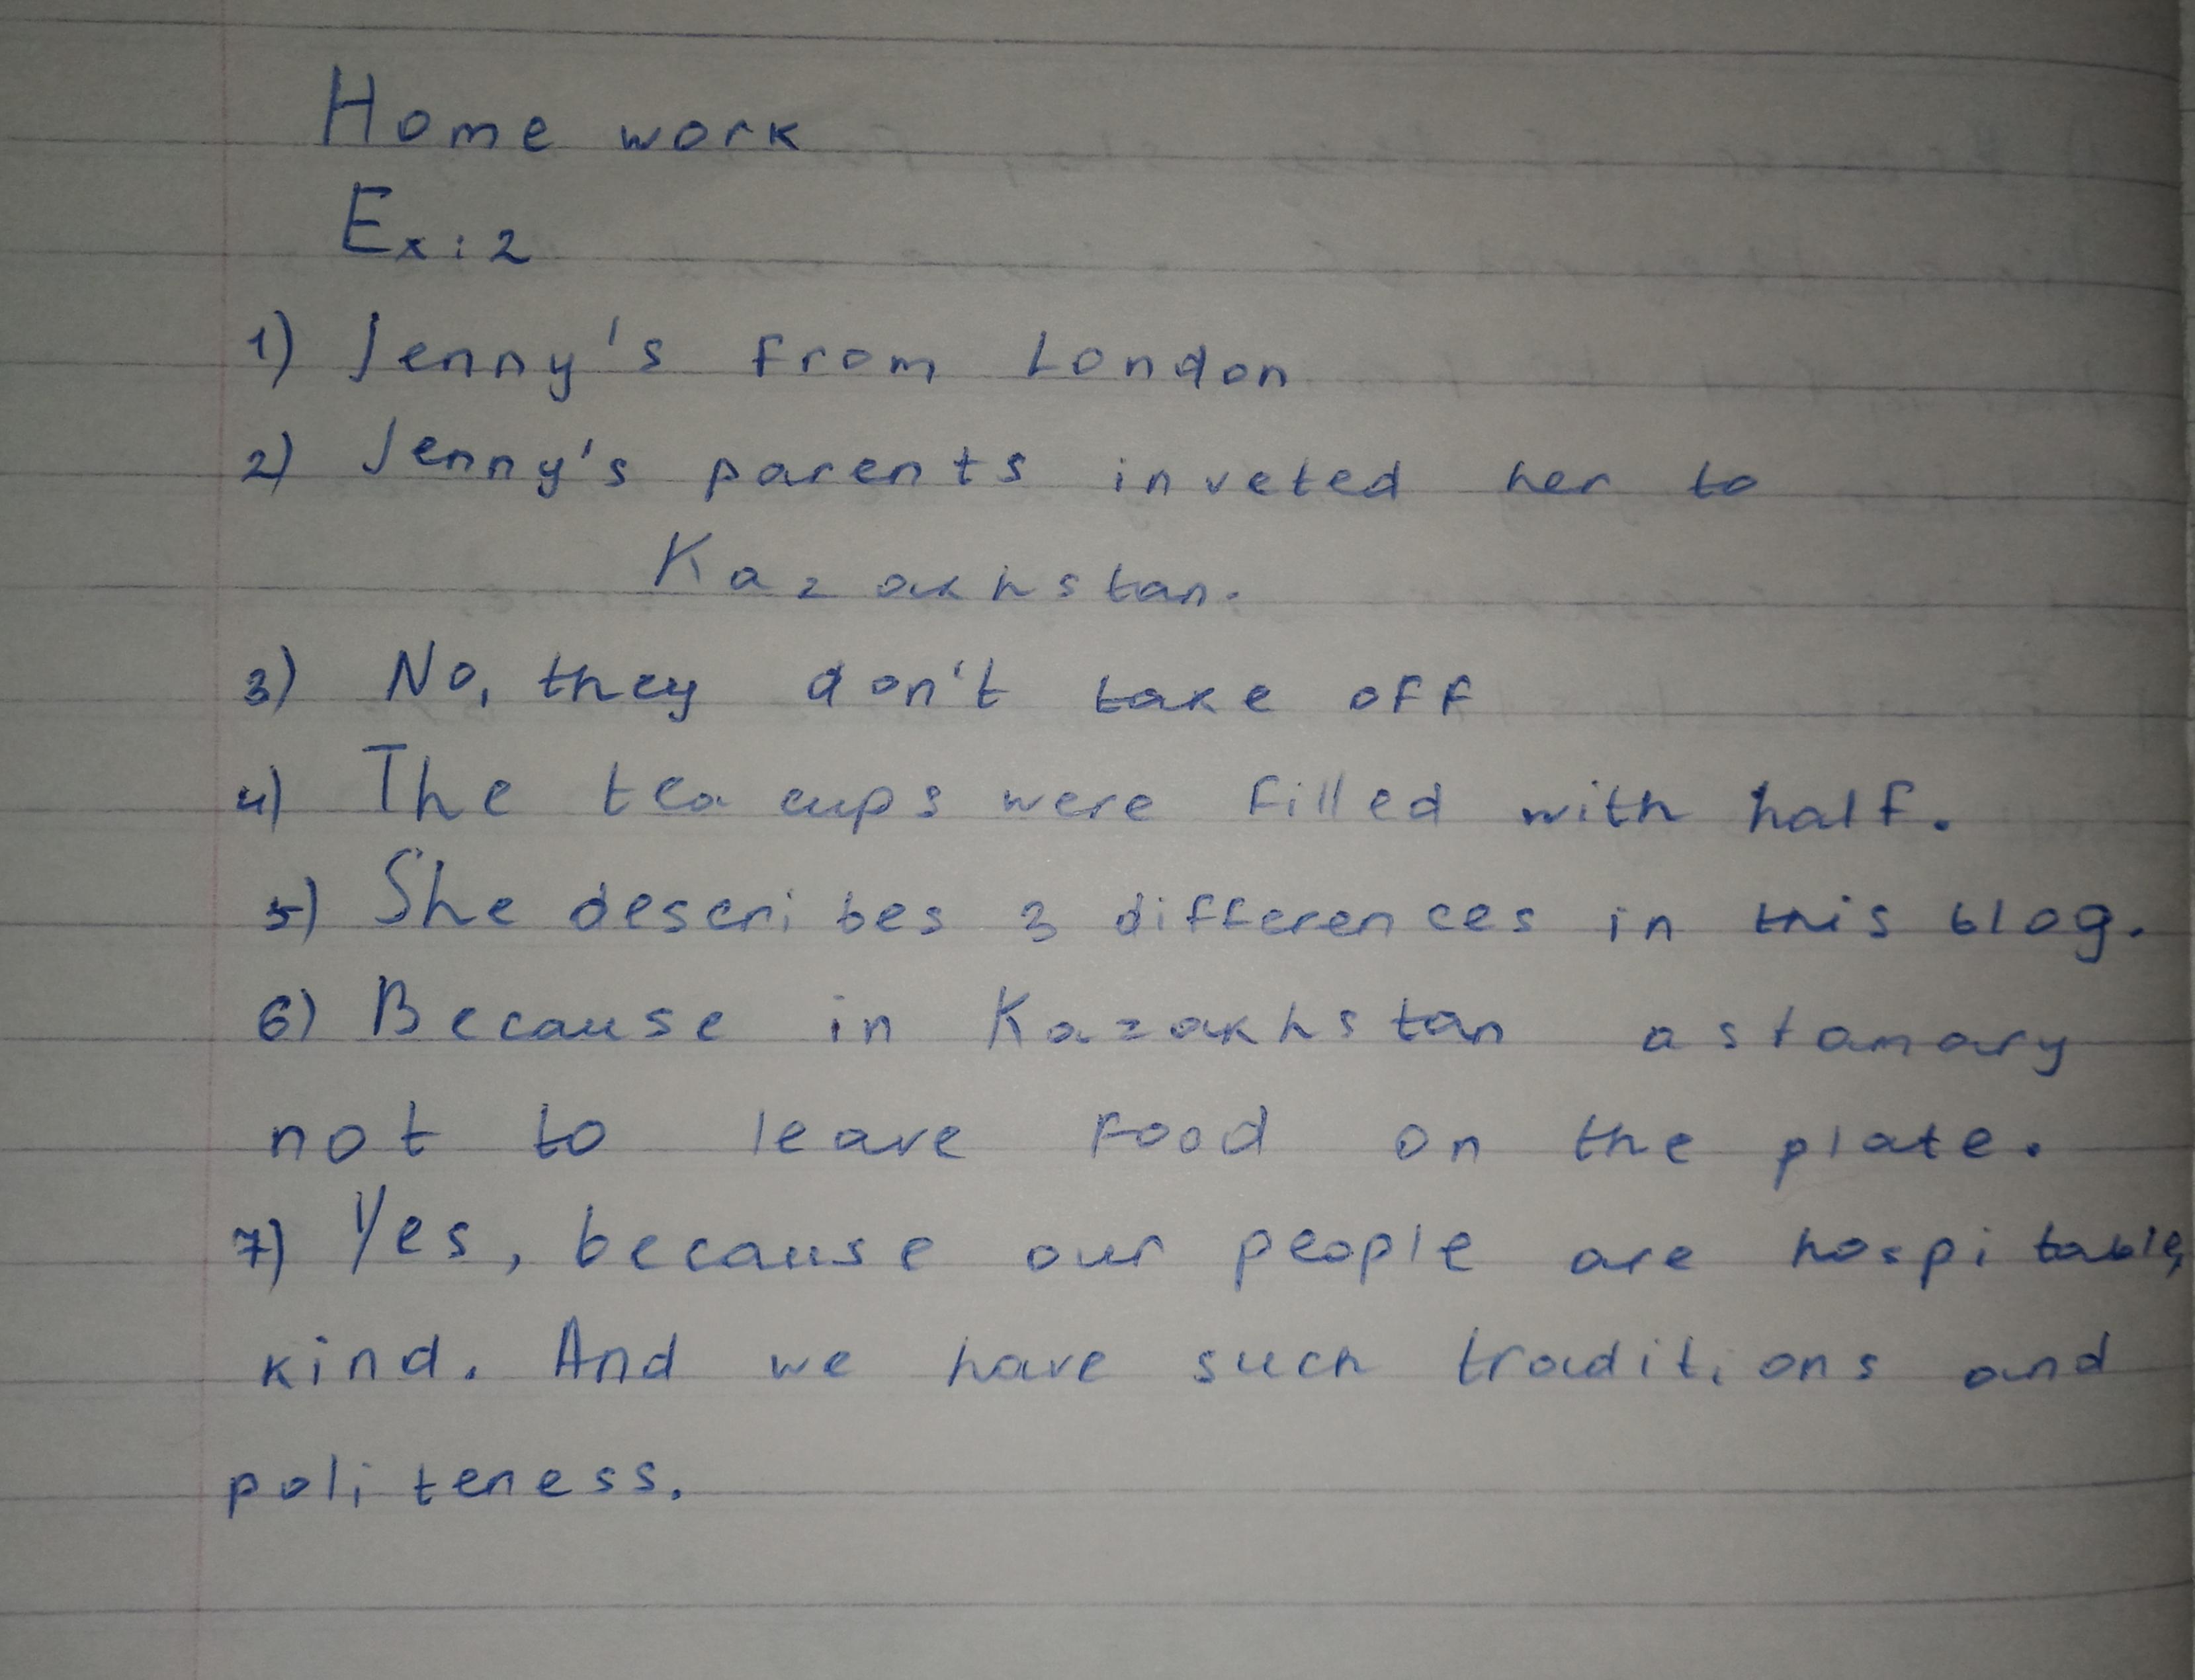 Home work
Ex:2
1) Jenny's from London
2) Jenny's parents inveted her to
Kazakhstan.
3) No, they don't take off
4) The tea cups were filled with half.
5) She describes 3 differences in this blog.
6) Because in Kazakhstan astamary
not to leave food on the plate.
7) Yes, because our people are hospitable,
kind. And we have such traditions and
politeness.